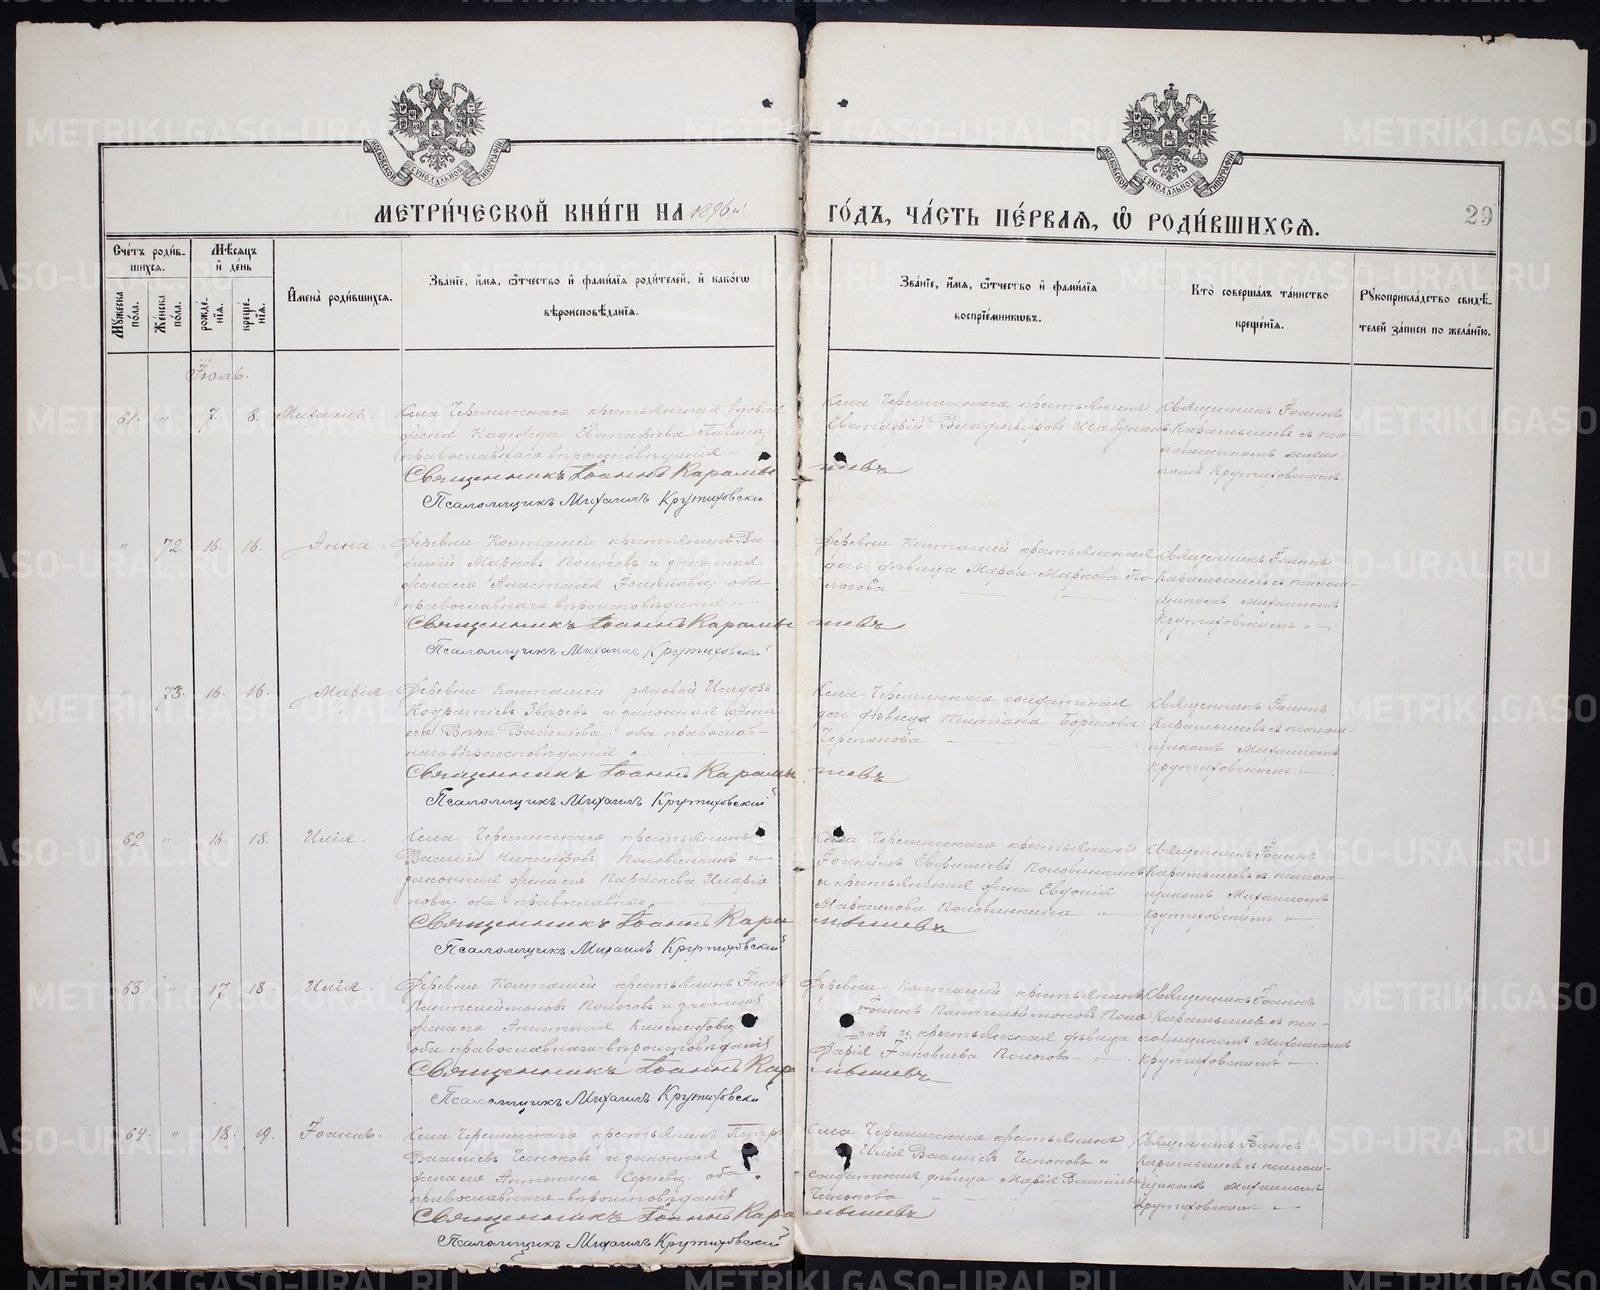 МЕТРИ́ЧЕСКОЙ КНИ́ГИ НА 1896й
ГО́ДЪ, ЧА́СТЬ ПЕ́РВАЯ, Ѿ РОДИ́ВШИХСЯ.
29
Сче́тъ роди́в-
шихся.
Му́жеска по́ла.
Же́нска по́ла.
Мѣ́сяцъ
и҆ де́нь
рожде́-
нїя.
креще́-
нїя.
И҆мена̀ роди́вшихся.
Зва́нїе, и҆́мя, ѻ҆́тчество и҆ фами́лїя роди́телей, и҆ како́гѡ
вѣроисповѣ́данїя.
Зва́нїе, и҆́мя, ѻ҆́тчество и҆ фами́лїя
воспрїе́мникѡвъ.
Кто̀ соверша́лъ та́инство
креще́нїя.
Рꙋкоприкла́дство свидѣ́-
телей за́писи по жела́нїю.
Іюль.
61. " 7. 8. Михаилъ.
Села Черемисскаго крестьянская вдовья
жена Надежда Евстафіева
православнаго вѣроисповѣданія
Священникъ Іоаннъ Карамышевъ
Псаломщикъ Михаилъ Крутиховский
Села Черемисскаго крестьянинъ
Евстафій Владиміровъ
Священникъ Іоаннъ
Карамышевъ с пса-
ломщикомъ Михаи-
ломъ Крутиховскимъ.
" 72. 16. 16. Анна.
Деревни Колташей крестьянинъ Ва-
силий Марковъ Пологовъ и законная
жена его Анастасія Іоаннова, оба
православнаго вѣроисповѣданія
Священникъ Іоаннъ Карамышевъ
Псаломщикъ Михаилъ Крутиховский
Деревни Колташей крестьянская
дочь дѣвица Марѳа Маркова По-
логова
Священникъ Іоаннъ
Карамышевъ с псалом-
щикомъ Михаиломъ
Крутиховскимъ
" 73. 16. 16. Марія.
Деревни Колташей рядовой Исидоръ
Кодратіевъ Звѣревъ и законная жена
его Вѣра Василіева, оба православ-
наго вѣроисповѣданія
Священникъ Іоаннъ Карамышевъ
Псаломщикъ Михаилъ Крутиховский
Села Черемисскаго солдатская
дочь дѣвица Татіана Борисова
Черепанова
Священникъ Іоаннъ
Карамышевъ с псалом-
щикомъ Михаиломъ
Крутиховскимъ
62. " 16. 18. Илія.
Села Черемисскаго крестьянинъ
Василий Никифоровъ Половинкинъ и
законная жена его Параскева Иларіо-
нова, оба православные
Священникъ Іоаннъ Карамышевъ
Псаломщикъ Михаилъ Крутиховский
Села Черемисскаго крестьянинъ
Іоакимъ Евфиміевъ Половинкинъ
и крестьянская жена Евдокія
Маркелова Половинкина
Священникъ Іоаннъ
Карамышевъ с псалом-
щикомъ Михаиломъ
Крутиховскимъ
63. " 17. 18. Илія.
Деревни Колташей крестьянинъ Іаковъ
Пантелеймоновъ Пологовъ и законная
жена его Анастасія
оба православнаго вѣроисповѣданія
Священникъ Іоаннъ Карамышевъ
Псаломщикъ Михаилъ Крутиховский
Деревни Колташей крестьянинъ
Іоаннъ Пантелеймоновъ Поло-
говъ и крестьянская дѣвица
Дарія Іаковлева Пологова
Священникъ Іоаннъ
Карамышевъ с пса-
ломщикомъ Михаиломъ
Крутиховскимъ
64. " 18. 19. Іоаннъ.
Села Черемисскаго крестьянинъ Петръ
Василіевъ Чесноковъ и законная
жена его Антонина Сергіева, оба
православнаго вѣроисповѣданія
Священникъ Іоаннъ Карамышевъ
Псаломщикъ Михаилъ Крутиховский
Села Черемисскаго крестьянинъ
Илія Василіевъ Чесноковъ и
солдатская дѣвица Марія Василіева
Чеснокова
Священникъ Іоаннъ
Карамышевъ с псалом-
щикомъ Михаиломъ
Крутиховскимъ
METRIKI.GASO-URAL.RU